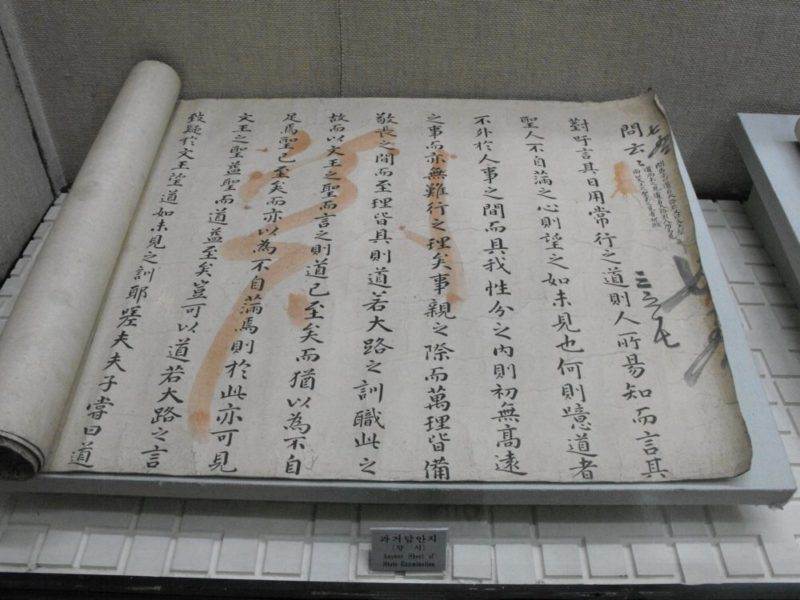 問云云
對吁言其日用常行之道則人所易知而言其
聖人不自滿之心則望之如未見也何則噫道者
不外於人事之間而具我性分之內則初無高遠
之事而亦無難行之理矣事親之際而萬理皆備
敬長之間而至理皆具則道若大路之訓職此之
故而以文王之聖而言之則道已至矣而猶以為不自
足焉聖已至矣而亦以為不自滿焉則於此亦可見
文王之聖益聖而道益至矣豈可以道若大路之言
致疑於文王望道如未見之訓耶嗟夫夫子嘗曰道
과거답안지
(향시)
Answer Sheet of
State Examination